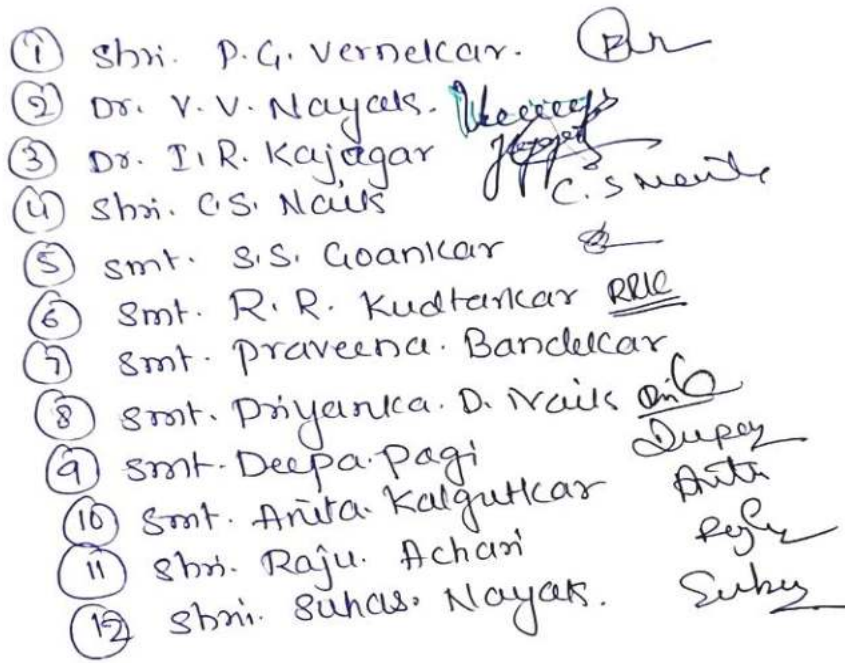 ① Shri. P.G. Vernekar.
② Dr. V.V. Nayak.
③ Dr. I.R. Kajagar
④ Shri. C.S. Naik C.S Naik
⑤ Smt. S.S. Goankar
⑥ Smt. R.R. Kudtarkar RRK
⑦ Smt. Praveena. Bandekar
⑧ Smt. Priyanka. D. Naik
⑨ Smt. Deepa. Pagi
⑩ Smt. Anita. Kalgutkar Anita
⑪ Shri. Raju. Achari
⑫ Shri. Suhas. Nayak.